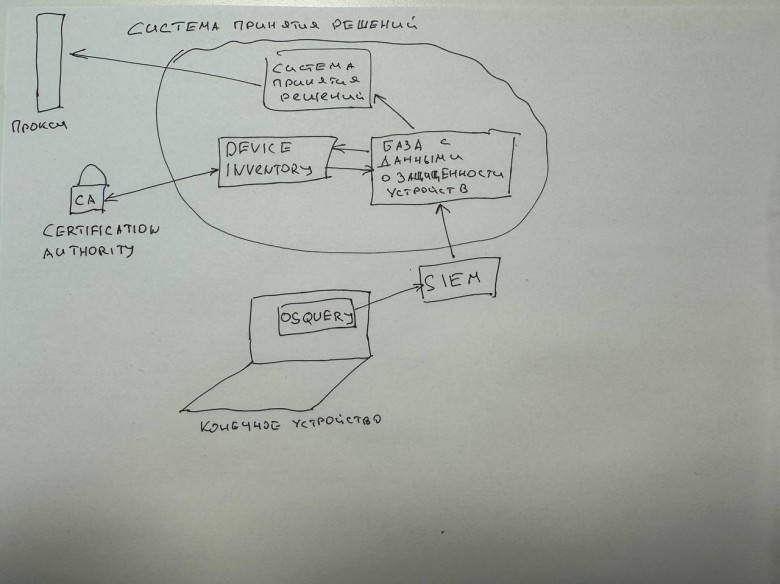 СИСТЕМА ПРИНЯТИЯ РЕШЕНИЙ
СИСТЕМА
ПРИНЯТИЯ
РЕШЕНИЙ
ПРОКСИ
DEVICE
INVENTORY
БАЗА С
ДАННЫМИ
О ЗАЩИЩЕННОСТИ
УСТРОЙСТВ
CA
CERTIFICATION
AUTHORITY
SIEM
OSQUERY
КОНЕЧНОЕ УСТРОЙСТВО